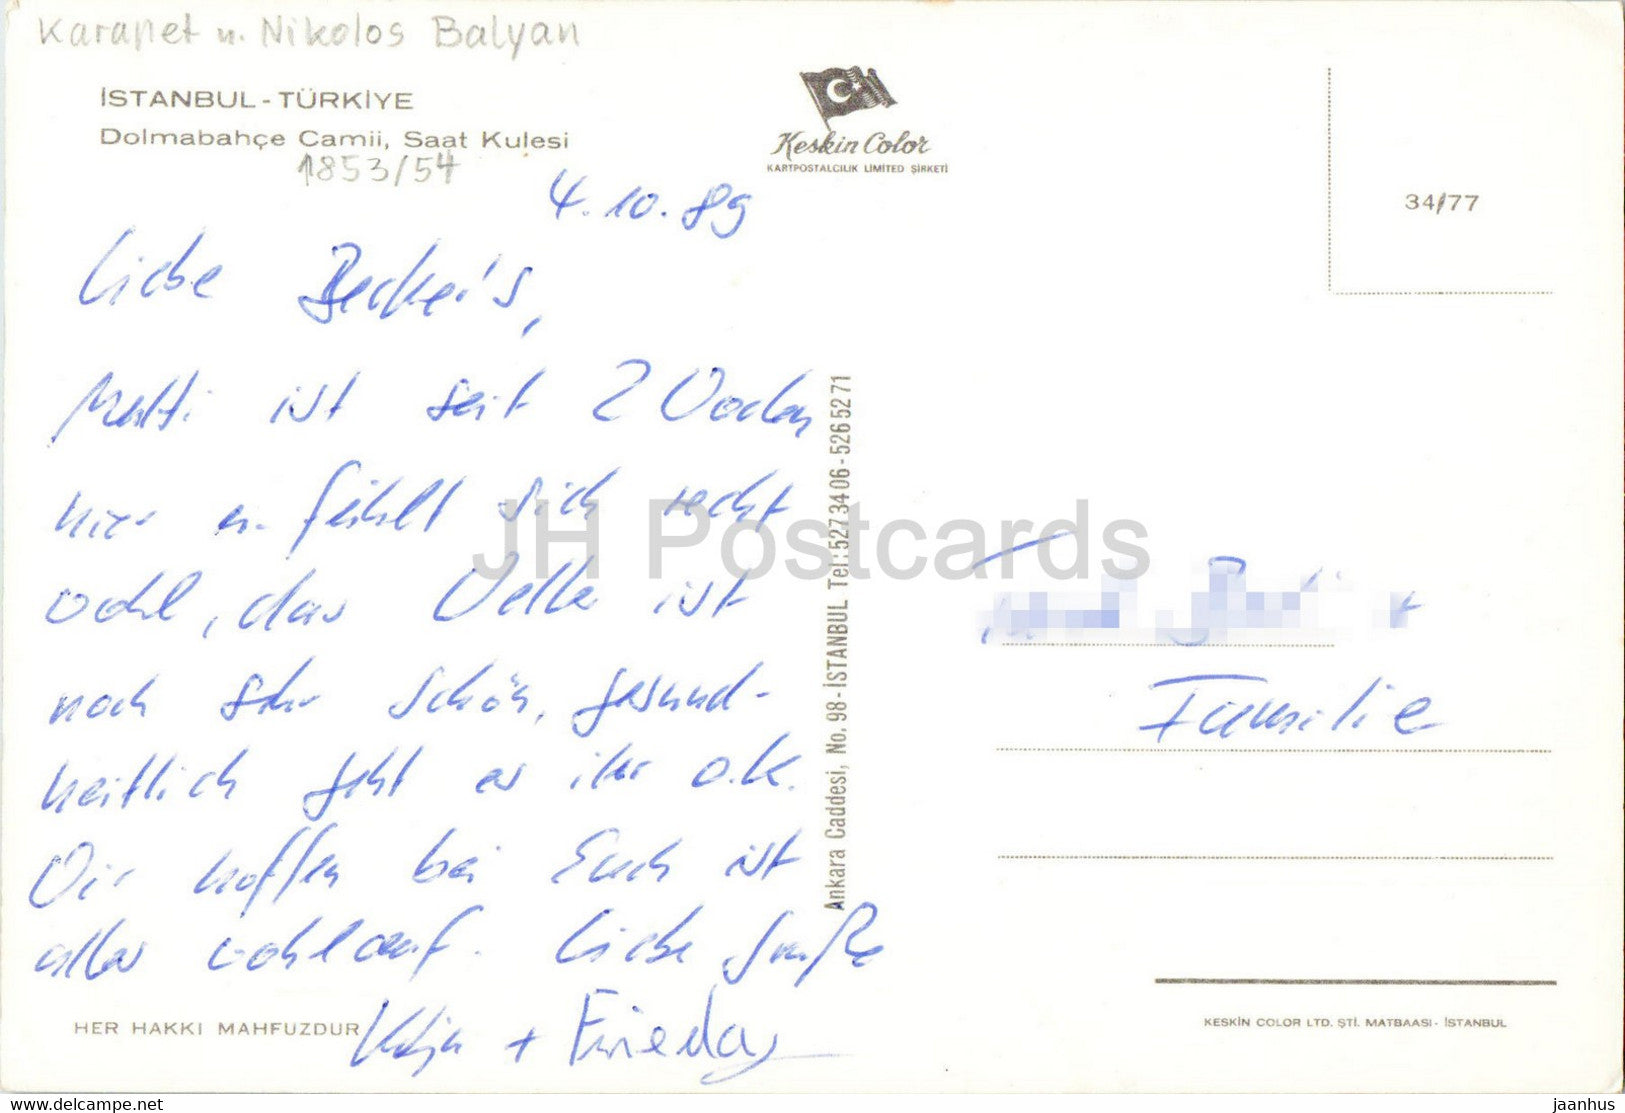 Karapet u. Nikolos Balyan
İSTANBUL - TÜRKİYE
Dolmabahçe Camii, Saat Kulesi
1853/54
Keskin Color
KARTPOSTALCILIK LIMITED ŞIRKETİ
34/77
4.10.89
Liebe Becker's,
Mutti ist seit 2 Wochen
hier u. fühlt sich recht
wohl, das Wetter ist
noch sehr schön, gesund-
heitlich geht es ihr o.k.
Wir hoffen bei Euch ist
alles wohlauf. Liebe Grüße
Katja + Frieda
Ankara Caddesi, No. 98 - İSTANBUL Tel: 527 34 06 - 526 52 71
JH Postcards
Familie
HER HAKKI MAHFUZDUR
KESKİN COLOR LTD. ŞTİ. MATBAASI - İSTANBUL
www.delcampe.net
jaanhus